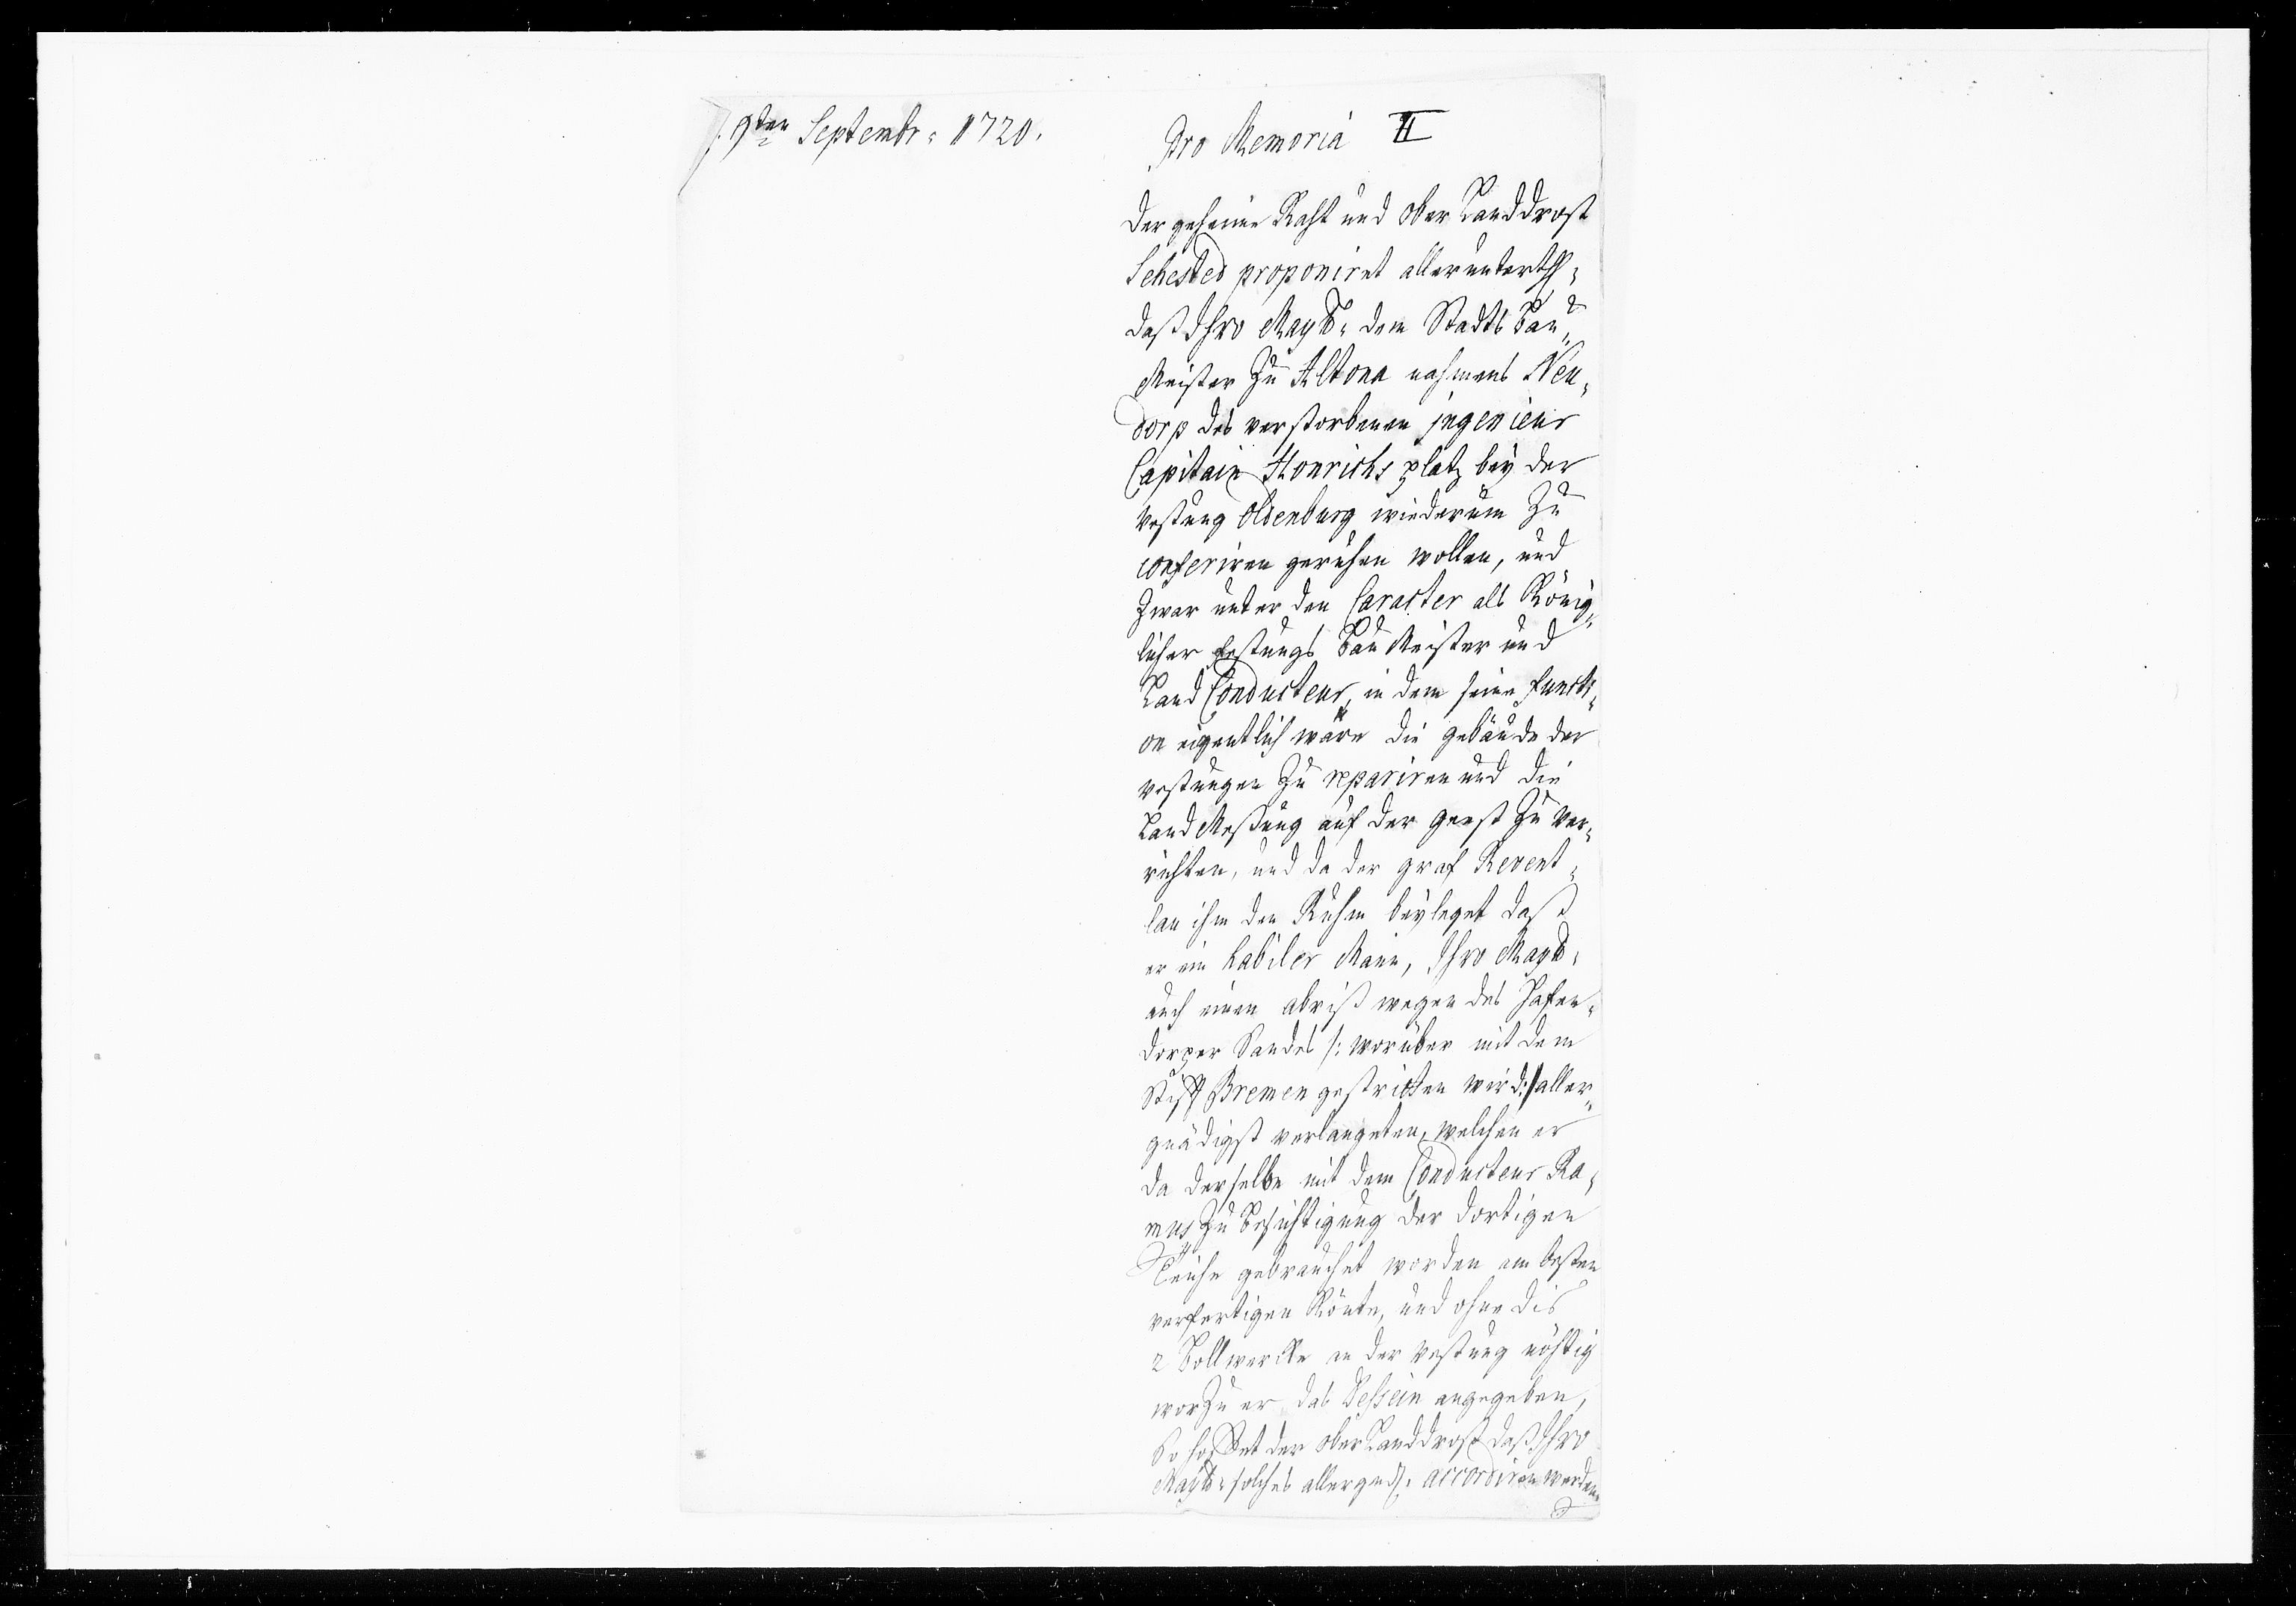 9ten Septembr: 1720.
Pro Memoria II
Der geheime Raht und Ober Landdrost
Sehested proponiret allerunterth:
daß Ihro Maytt: dem Stadts Bau¬
Meister zu Altona nahmens Neu¬
dorp des verstorbenen jngenieur
Capitain Honrichs platz bey der
Vestung Oldenburg wiederum zu
conferiren geruhen wollen, und
zwar unter den Caracter als König¬
licher festungs Bau Meister und
Land Conducteur, in dem seine functi¬
on eigentlich wäre die gebäude der
vestungen zu repariren und die
Land Meßung auf der Geest zu ver¬
richten, und da der graf Revent¬
lau ihm den Ruhm beyleget daß
er ein habiler Mann, Ihro Maytt:
auch einen abriß wegen des Hafen¬
dorper Sandes /: worüber mit dem
Stifft Bremen gestritten wird :/ aller¬
gnädigst verlangeten, welchen er
da derselbe mit dem Conducteur Ra¬
mus zu Besichtigung der dortigen
Teiche gebrauchet worden am besten
verfertigen Könte, und ohne dis
2 Bollwercke an der Vestung nöhtig
worzu er das Dessein angegeben,
So hoffet der Ober Landdrost daß Ihro
Maytt: solches allergndst: accordiren werden